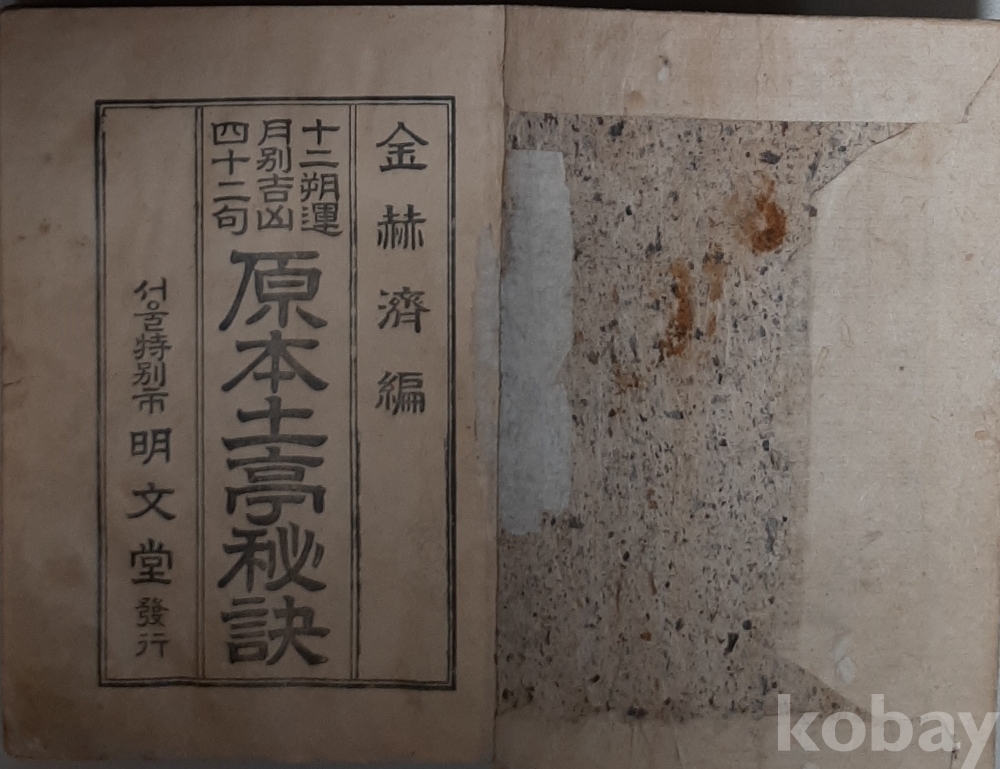 金赫濟編
十二朔運
月別吉凶
四十二句
原本土亭秘訣
서울特別市明文堂發行
kobay